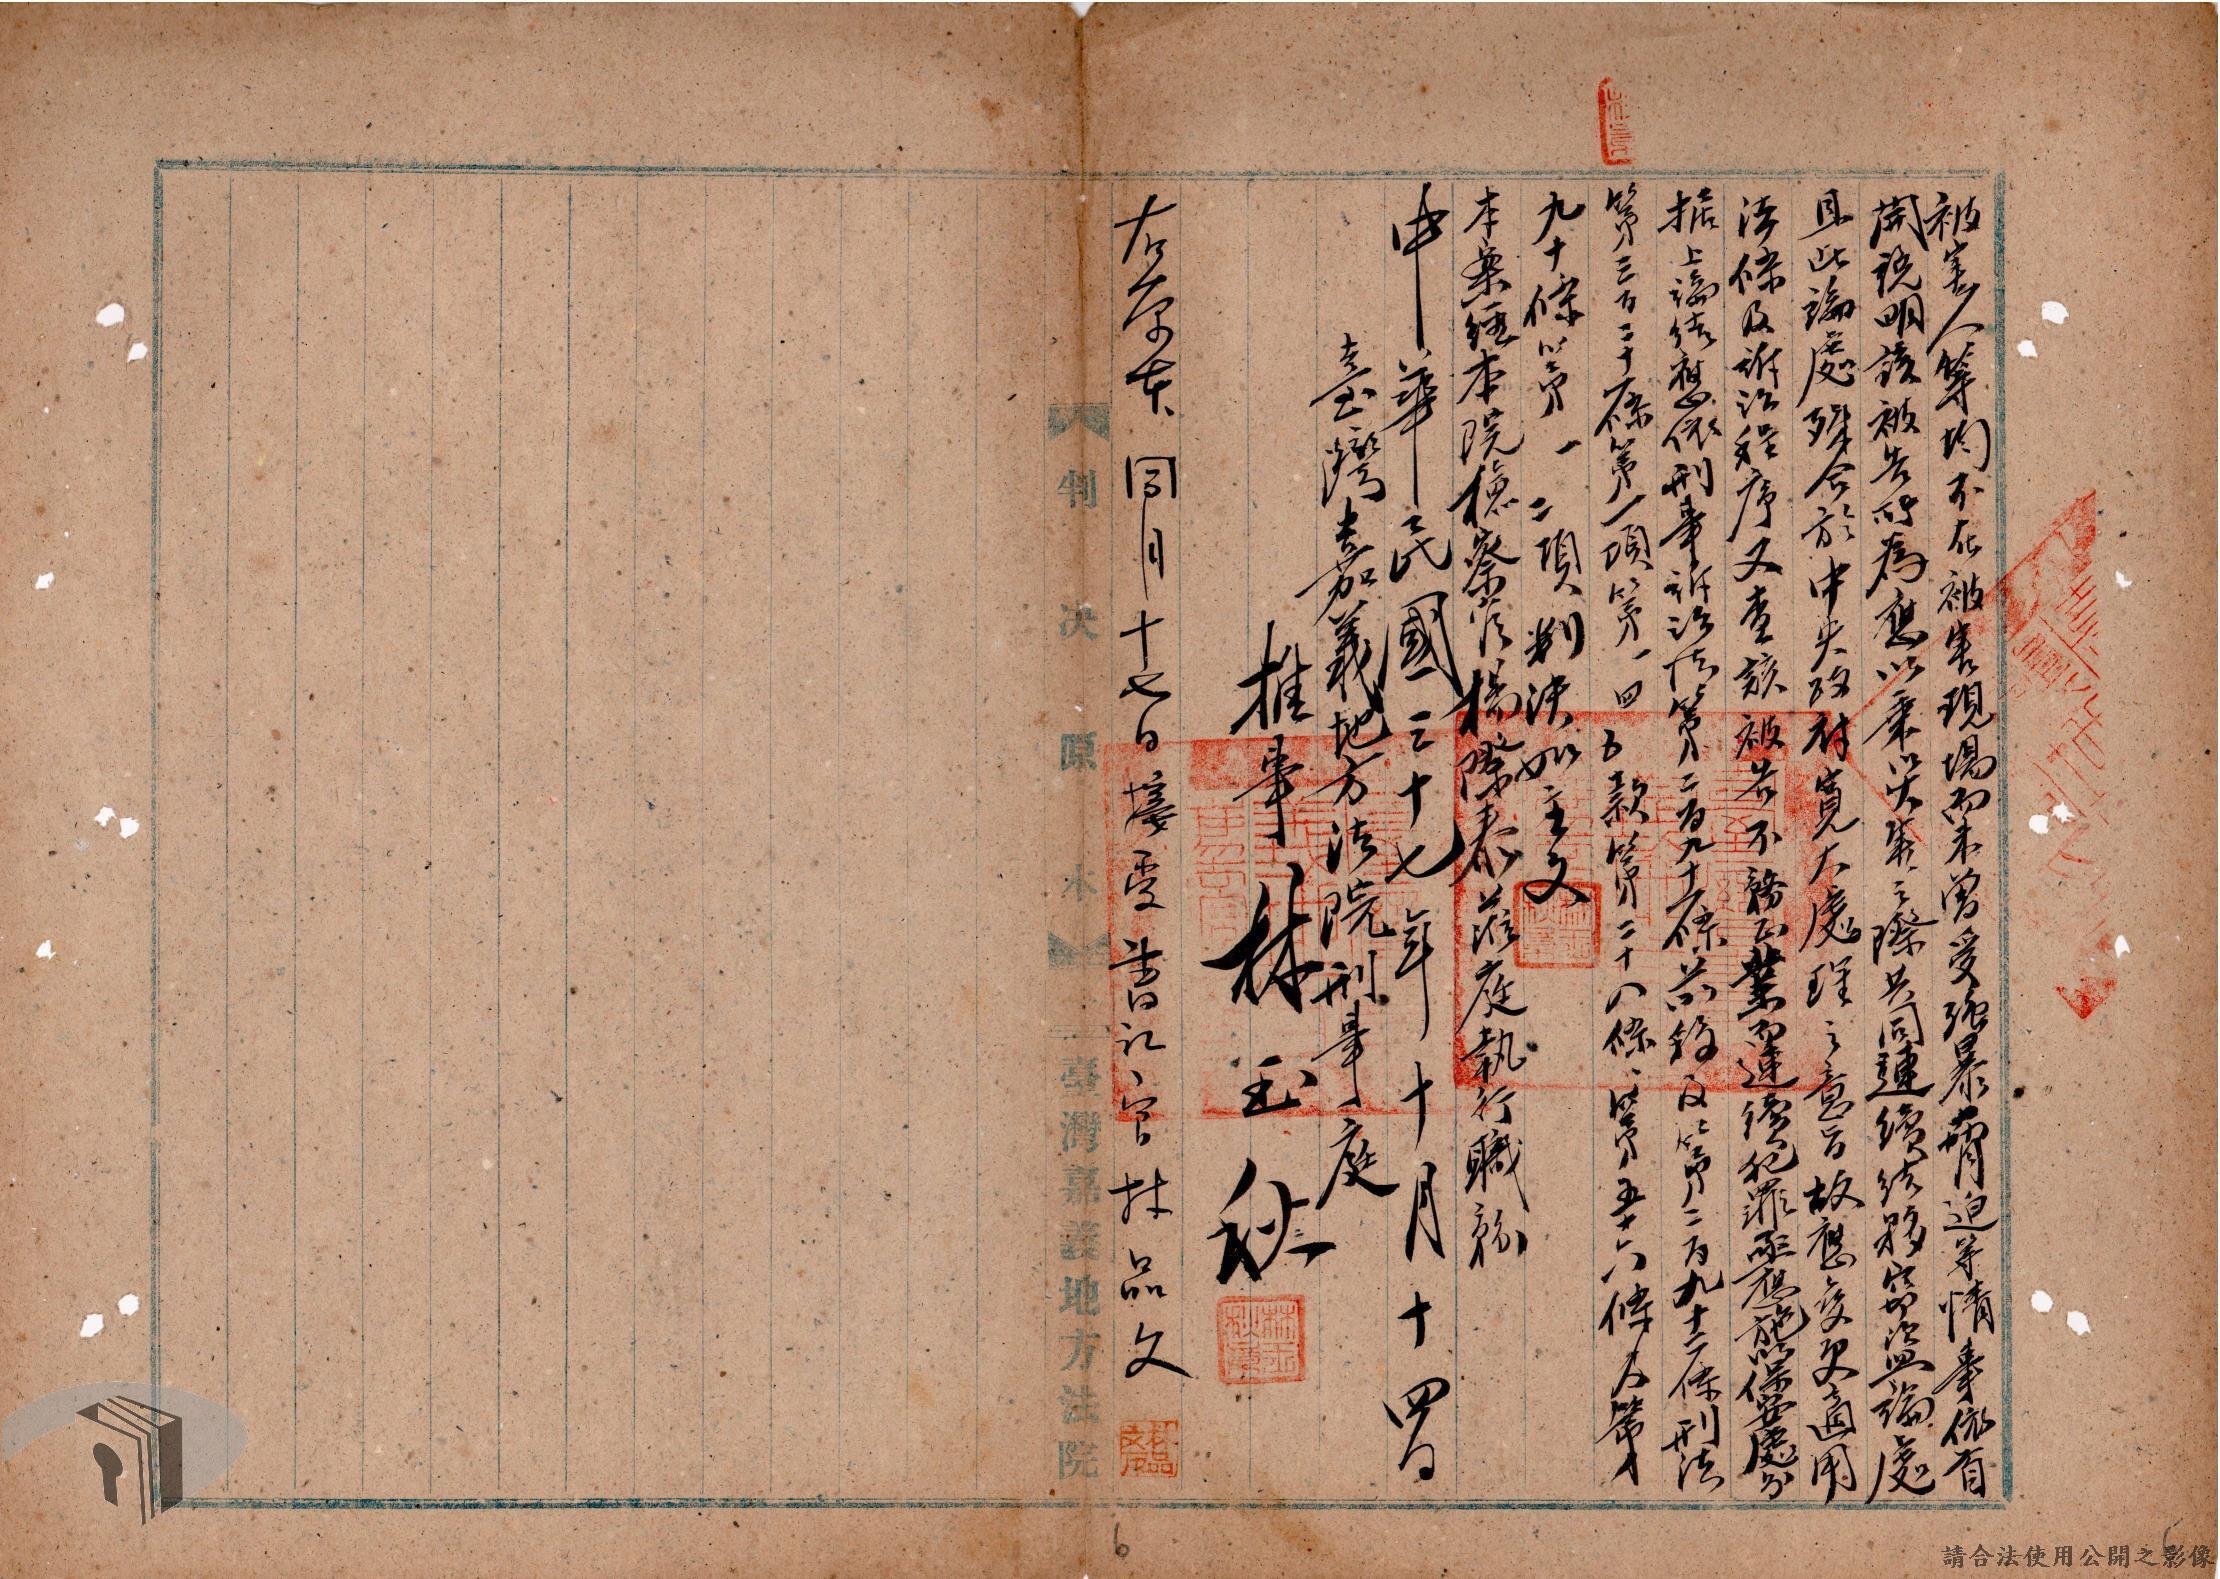 被害人等均不在被害現場而未曾受強暴脅迫等情事依首
開說明該被告所為應以乘災害之際共同連續結夥竊盜論處
且此論處殊合於中央政府寬大處理之意旨故應變更適用
法條及訴訟程序又查該被告不務正業而連續犯罪亟應施以保安處分
據上論結應依刑事訴訟法第二百九十一條前段及第二百九十二條刑法
第三百二十一條第一項第一四五款第二十八條、第五十六條及第
九十條第一二項判決如主文
本案經本院檢察官楊際泰蒞庭執行職務
中華民國三十七年十月十四日
臺灣嘉義地方法院刑事庭
推事林玉秋
林玉秋章
右原本同月十七日接受書記官林品文
林品文
判決原本
臺灣嘉義地方法院
6
請合法使用公開之影像